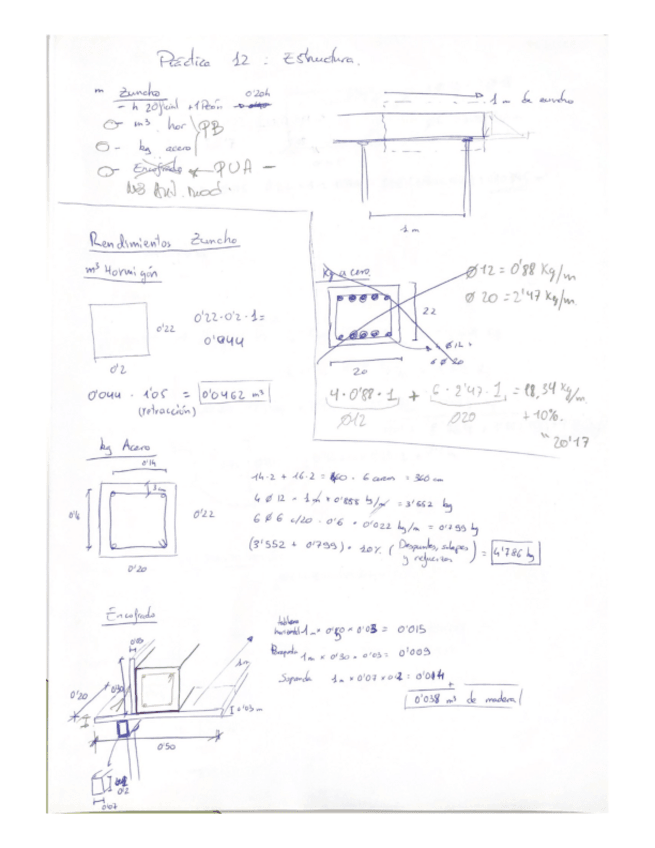 Práctica 12 : Estructura.
m Zuncho 0'20h
- h 20ficial + 1 Peón
m³ hor PB
- kg acero
Encofrado PUA -
1 m de zuncho
1 m
Rendimientos Zuncho
m³ Hormigón
0'22
0'2
0'22·0'2·1=
0'044
0'044 · 1'05 = 0'0462 m³
(retracción)
Kg acero
22
20
ø 12
6 ø 20
ø 12 = 0'88 Kg/m
ø 20 = 2'47 Kg/m.
4·0'88·1 + 6·2'47·1 = 18,34 Kg/m
ø12 ø20 +10%.
20'17
kg Acero
0'14
0'22
0'20
14·2 + 16·2 = 60 · 6 = 360 cm
4 ø 12 × 1m × 0'888 kg/m = 3'552 kg
6 ø 6 c/20 · 0'6 × 0'022 kg/m = 0'799 kg
(3'552 + 0'799) · 10% (Despuntes, solapes y refuerzos) = 4'786 kg
Encofrado
0'03
0'20
0'30
1m
0'03 m
0'50
0'2
0'07
tablero
horizontal 1m × 0'50 × 0'03 = 0'015
1m × 0'30 × 0'03 = 0'009
Sopanda 1m × 0'07 × 0'2 = 0'014
0'038 m³ de madera